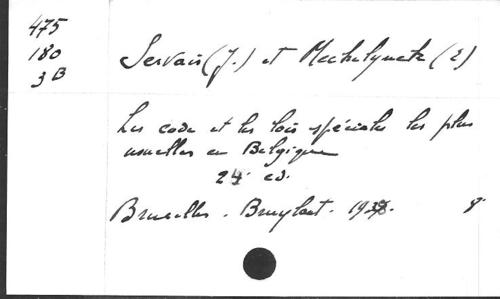 475
180
3 B
Servais (J.) et Mechelynck (E)
Les codes et les lois spéciales les plus
usuelles en Belgique
24. ed.
Bruxelles. Bruylant. 8°